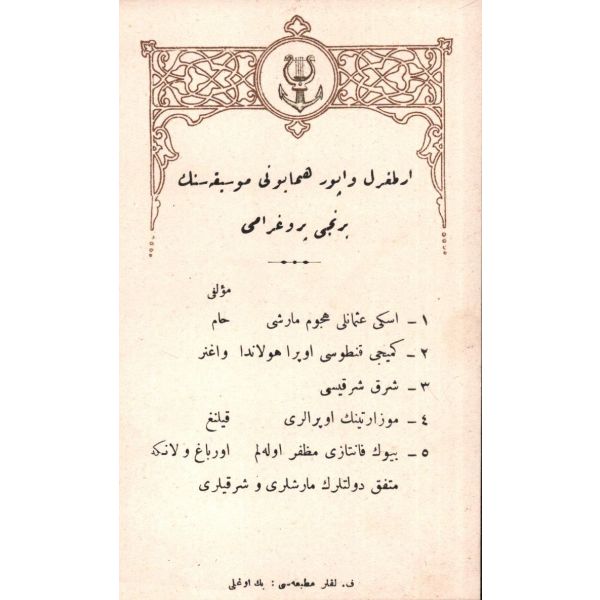 ارطغرل واپور همايونى موسيقه‌سنك
برنجى پروغرامى
مؤلفى
١ – اسكى عثمانلى هجوم مارشى حام
٢ – كميجى قنطوسى اوپرا هولاندا واغنر
٣ – شرق شرقيسى
٤ – موزارتينك اوپرالرى قيلنغ
٥ – بيوك فانتازى مظفر اوله‌لم اورباغ و لانكه
متفق دولتلرك مارشلرى و شرقيلرى
ف. لفلر مطبعه‌سى : بك اوغلى